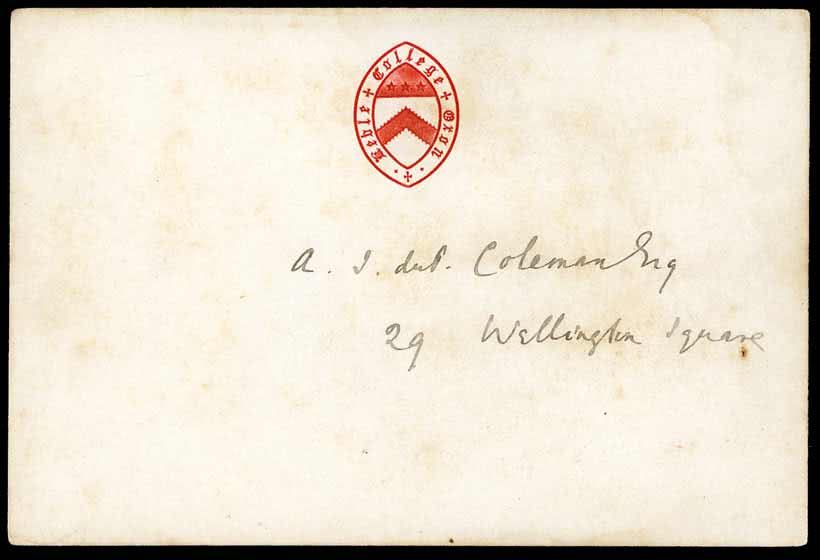 Keble College Oxon
A. I. duP. Coleman Esq
29 Wellington Square